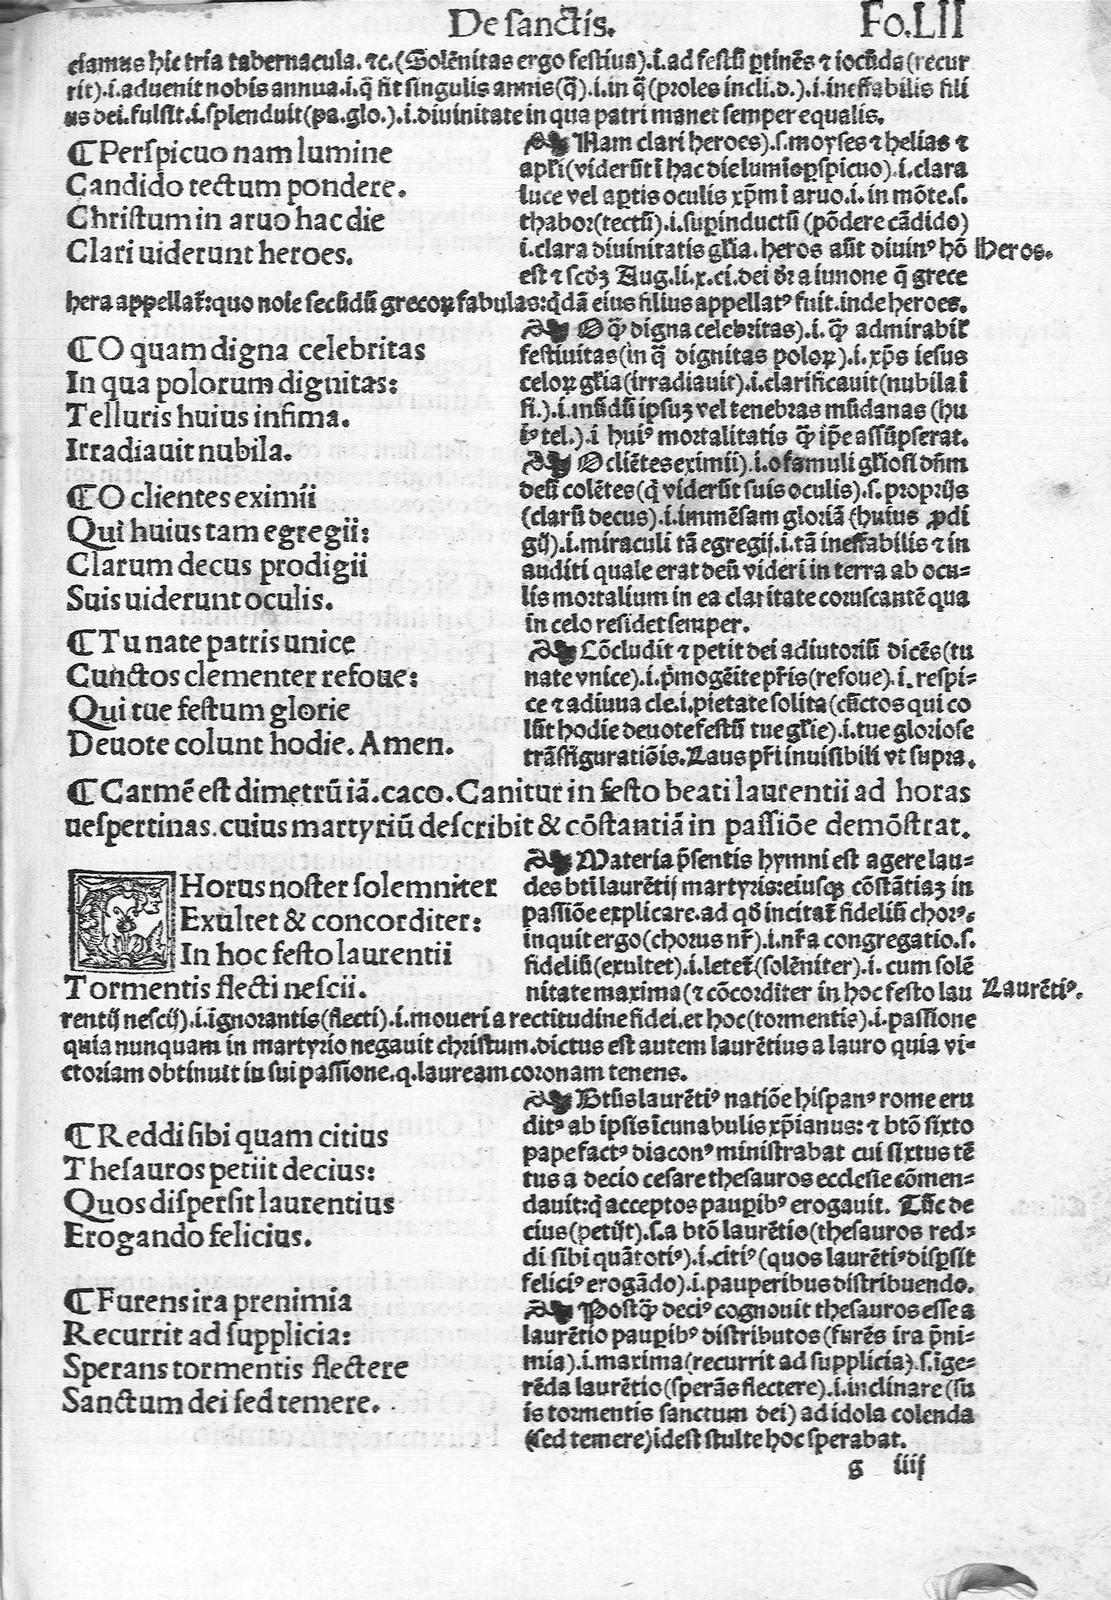 De sanctis. Fo.LII
ciamus hic tria tabernacula. ⁊c.(Solēnitas ergo festiua).i.ad festū ꝑtinēs ⁊ iocūda(recur
rit).i.aduenit nobis annua.i.q̄ fit singulis annis(q̄).i.in q̄(proles incli.d.).i.ineffabilis fili
us dei.fulsit.i.splenduit(pa.glo.).i.diuinitate in qua patri manet semper equalis.
¶ Perspicuo nam lumine
Candido tectum pondere.
Christum in aruo hac die
Clari uiderunt heroes.
Nam clari heroes).s.moyses ⁊ helias ⁊
apl̄i(viderūt ī hac die lumīe ꝑspicuo).i.clara
luce vel aptis oculis xp̄m ī aruo.i.in mōte.s.
thabor(tectū).i.suꝑinductū (pōdere cādido)
i.clara diuinitatis gl̄ia.heros aūt diuinꝰ hō
est ⁊ scd̄ꝫ Aug.li.x.ci.dei dr̄ a iunone q̄ grece
Heros.
hera appellat̄:quo noīe secūdū grecoꝝ fabulas:q̄dā eius filius appellatꝰ fuit.inde heroes.
¶ O quam digna celebritas
In qua polorum dignitas:
Telluris huius infima.
Irradiauit nubila.
O q̄ꝫ digna celebritas).i. q̄ꝫ admirabil̄
festiuitas(in q̄ dignitas poloꝝ).i.xp̄s iesus
celoꝝ gl̄ia(irradiauit).i.clarificauit(nubila ī
fi.).i.mūdū ipsuꝫ vel tenebras mūdanas (hu
iꝰ tel.).i huiꝰ mortalitatis q̄ꝫ ip̄e assūpserat.
¶ O clientes eximii
Qui huius tam egregii:
Clarum decus prodigii
Suis uiderunt oculis.
O cliētes eximii).i.o famuli gl̄iosi dn̄m
deū colētes(q̄ viderūt suis oculis).s. proprijs
(clarū decus).i.immēsam gloriā (huius ꝓdi
gij).i.miraculi tā egregij.i.tā ineffabilis ⁊ in
auditi quale erat deū videri in terra ab ocu⸗
lis mortalium in ea claritate coruscantē qua
in celo residet semper.
¶ Tu nate patris unice
Cunctos clementer refoue:
Qui tue festum glorie
Deuote colunt hodie. Amen.
Cōcludit ⁊ petit dei adiutoriū dicēs(tu
nate vnice).i.p̄mogēite pr̄is(refoue).i.respi⸗
ce ⁊ adiuua cle.i.pietate solita(cūctos qui co
lūt hodie deuote festū tue gl̄ie).i.tue gloriose
trāsfiguratiōis. Laus pr̄i inuisibili vt supra.
¶ Carmē est dimetrū iā.caco. Canitur in festo beati laurentii ad horas
uespertinas.cuius martyriū describit & cōstantiā in passiōe demōstrat.
CHorus noster solemniter
Exultet & concorditer:
In hoc festo laurentii
Tormentis flecti nescii.
Materia p̄sentis hymni est agere lau⸗
des bt̄i laurētij martyris:eiusqꝫ cōstātiaꝫ in
passiōe explicare.ad qd̄ incitat̄ fideliū chorꝰ.
inquit ergo(chorus nr̄).i.nr̄a congregatio.s.
fideliū(exultet).i.letet̄(solēniter).i. cum solē
nitate maxima(⁊ cōcorditer in hoc festo lau
Laurētiꝰ.
rentij nescij).i.ignorantis(flecti).i.moueri a rectitudine fidei.et hoc(tormentis).i.passione
quia nunquam in martyrio negauit christum.dictus est autem laurētius a lauro quia vi⸗
ctoriam obtinuit in sui passione.q.lauream coronam tenens.
¶ Reddi sibi quam citius
Thesauros petiit decius:
Quos dispersit laurentius
Erogando felicius.
Bt̄us laurētiꝰ natiōe hispanꝰ rome eru
ditꝰ ab ipsis īcunabulis xp̄ianus: ⁊ btō sixto
pape factꝰ diaconꝰ ministrabat cui sixtus tē
tus a decio cesare thesauros ecclesie cōmen⸗
dauit:q̄ acceptos pauꝑibꝰ erogauit. Tūc de
cius(petijt).s.a btō laurētio(thesauros red⸗
di sibi quātotiꝰ).i.citiꝰ(quos laurētiꝰ disꝑsit
feliciꝰ erogādo).i.pauperibus distribuendo.
¶ Furens ira prenimia
Recurrit ad supplicia:
Sperans tormentis flectere
Sanctum dei sed temere.
Postq̄ꝫ deciꝰ cognouit thesauros esse a
laurētio pauꝑibꝰ distributos (furēs ira p̄ni⸗
mia).i.maxima(recurrit ad supplicia).s.īge⸗
rēda laurētio(sperās flectere).i.inclinare(su
is tormentis sanctum dei) ad idola colenda
(sed temere)idest stulte hoc sperabat.
g iiij